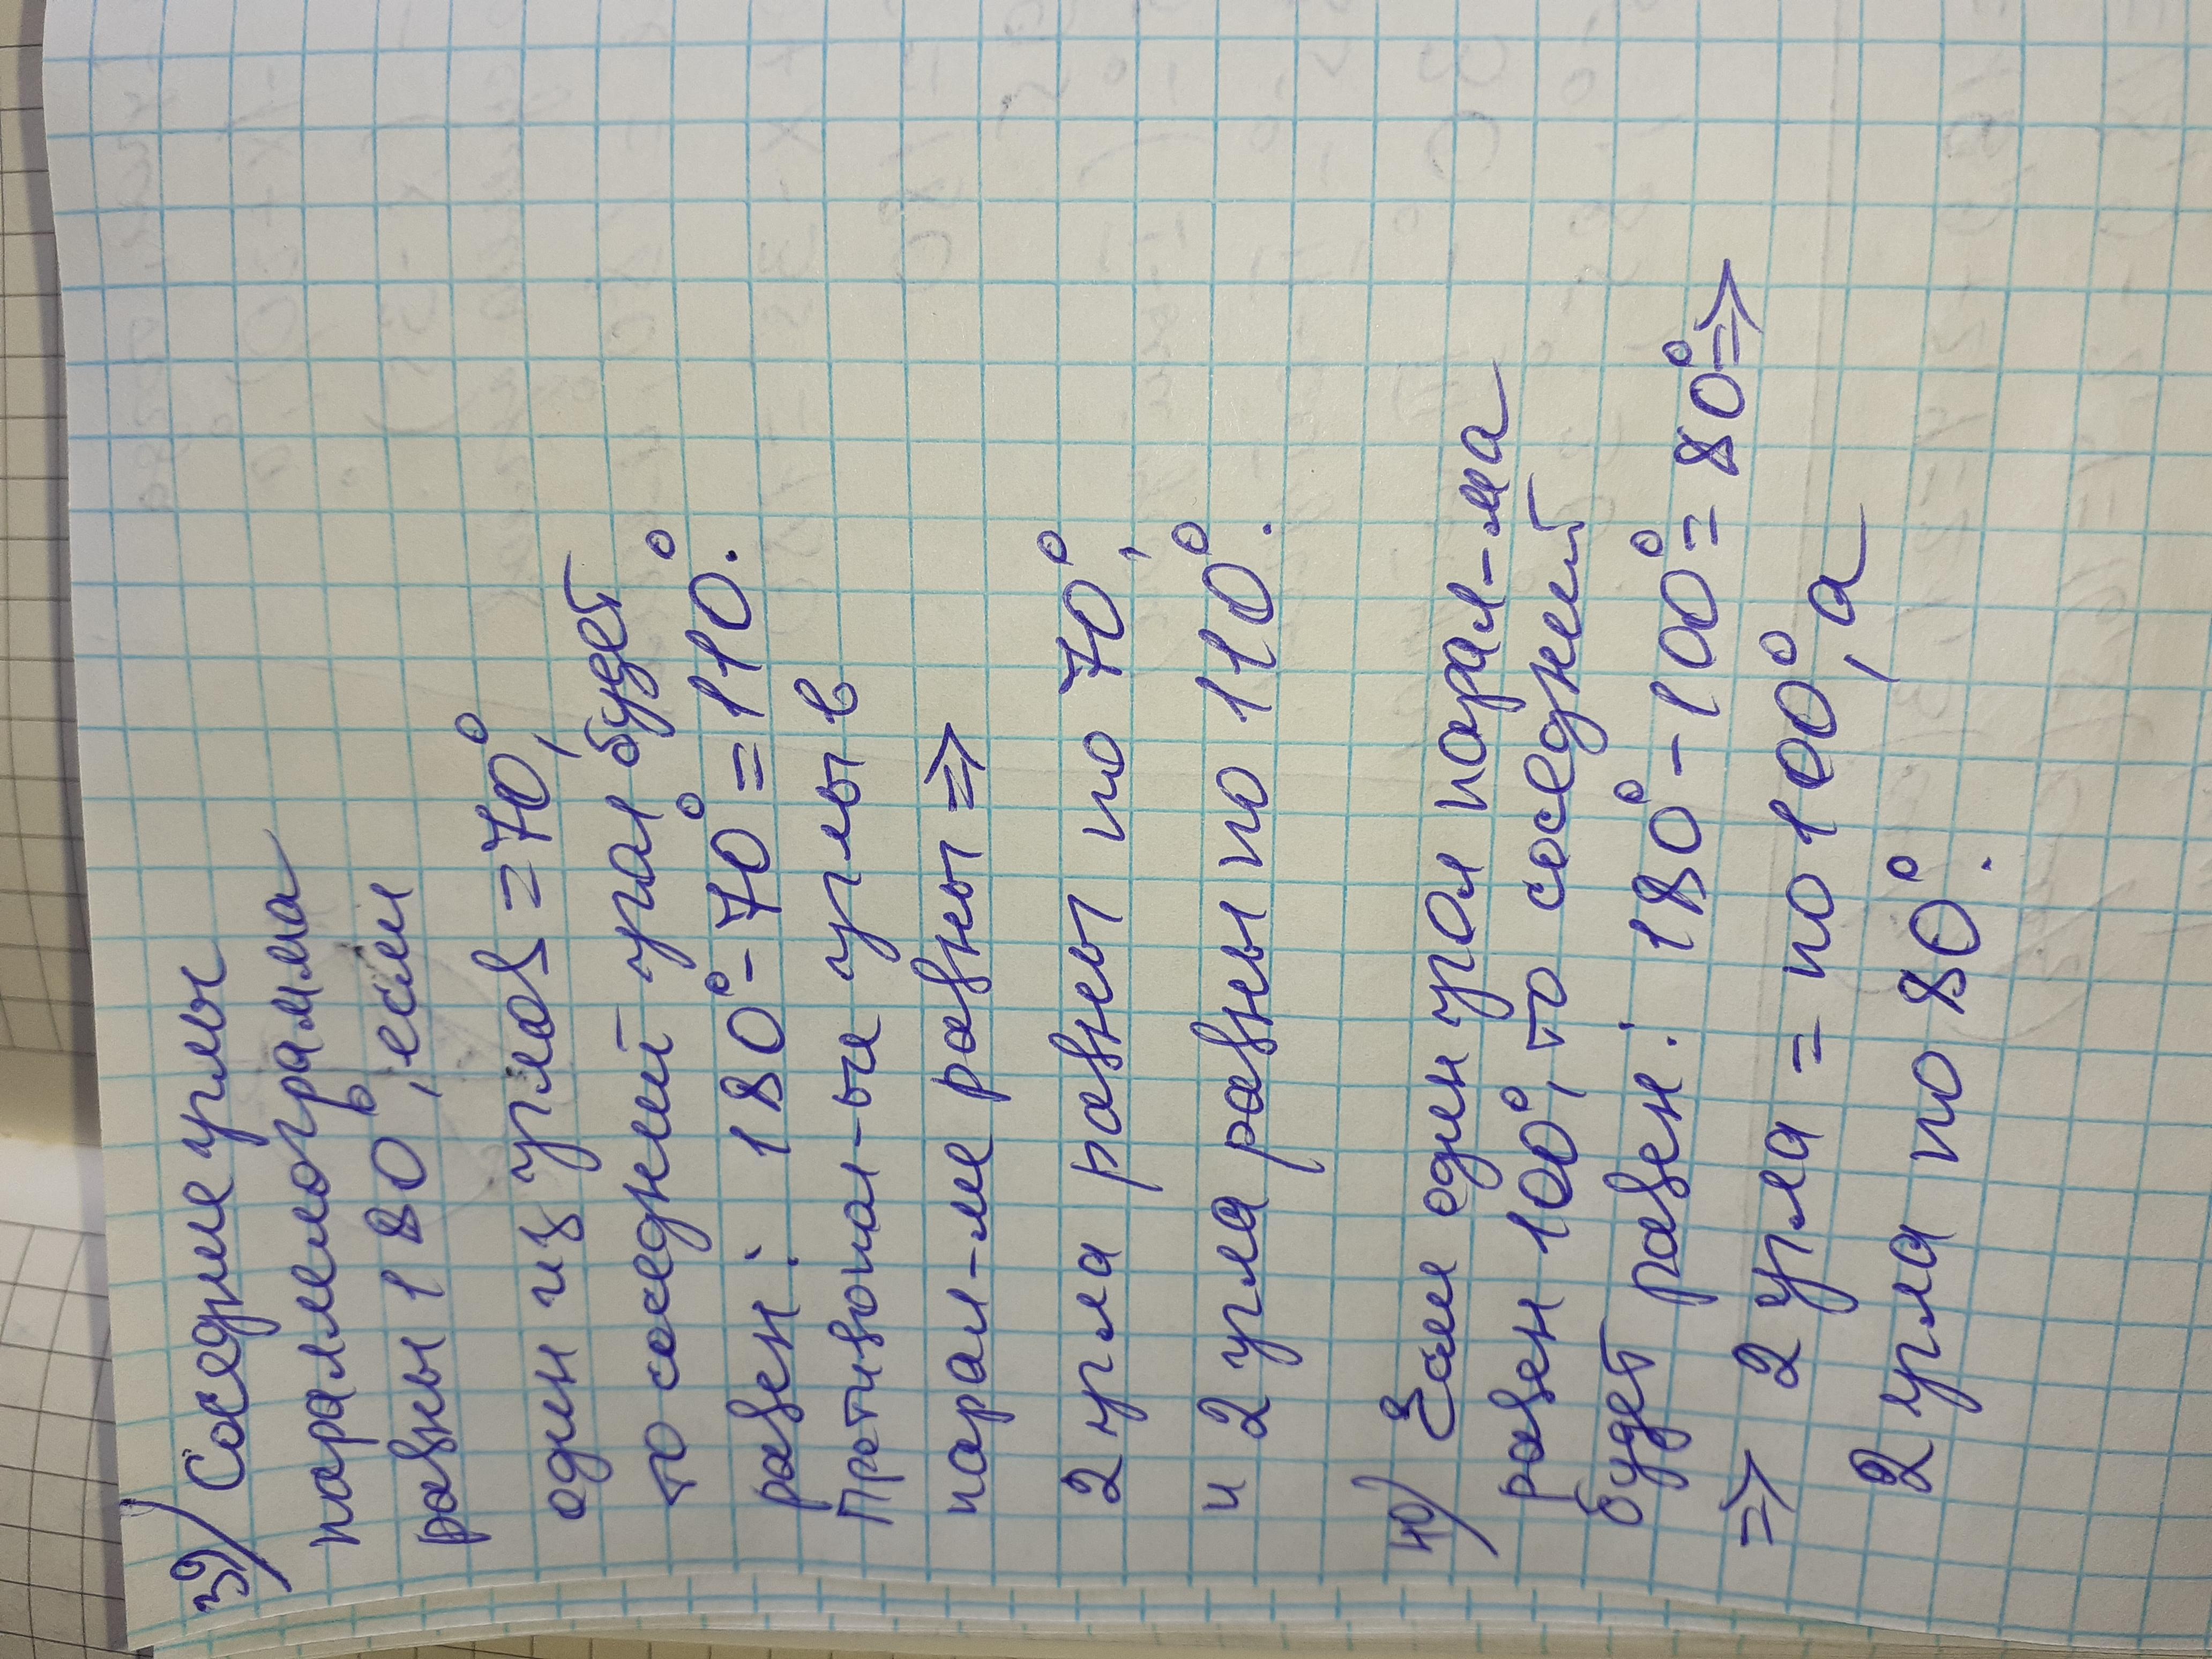 39) Соседние углы
параллелограмма
равны 180°, если
один из углов = 70°,
то соседний угол будет
равен: 180° - 70° = 110°.
Противопол-ые углы в
парал-ме равны =>
2 угла равны по 70°,
и 2 угла равны по 110°.
40) Если один угол парал-ма
равен 100°, то соседний
будет равен: 180° - 100° = 80° =>
=> 2 угла = по 100°, а
2 угла по 80°.